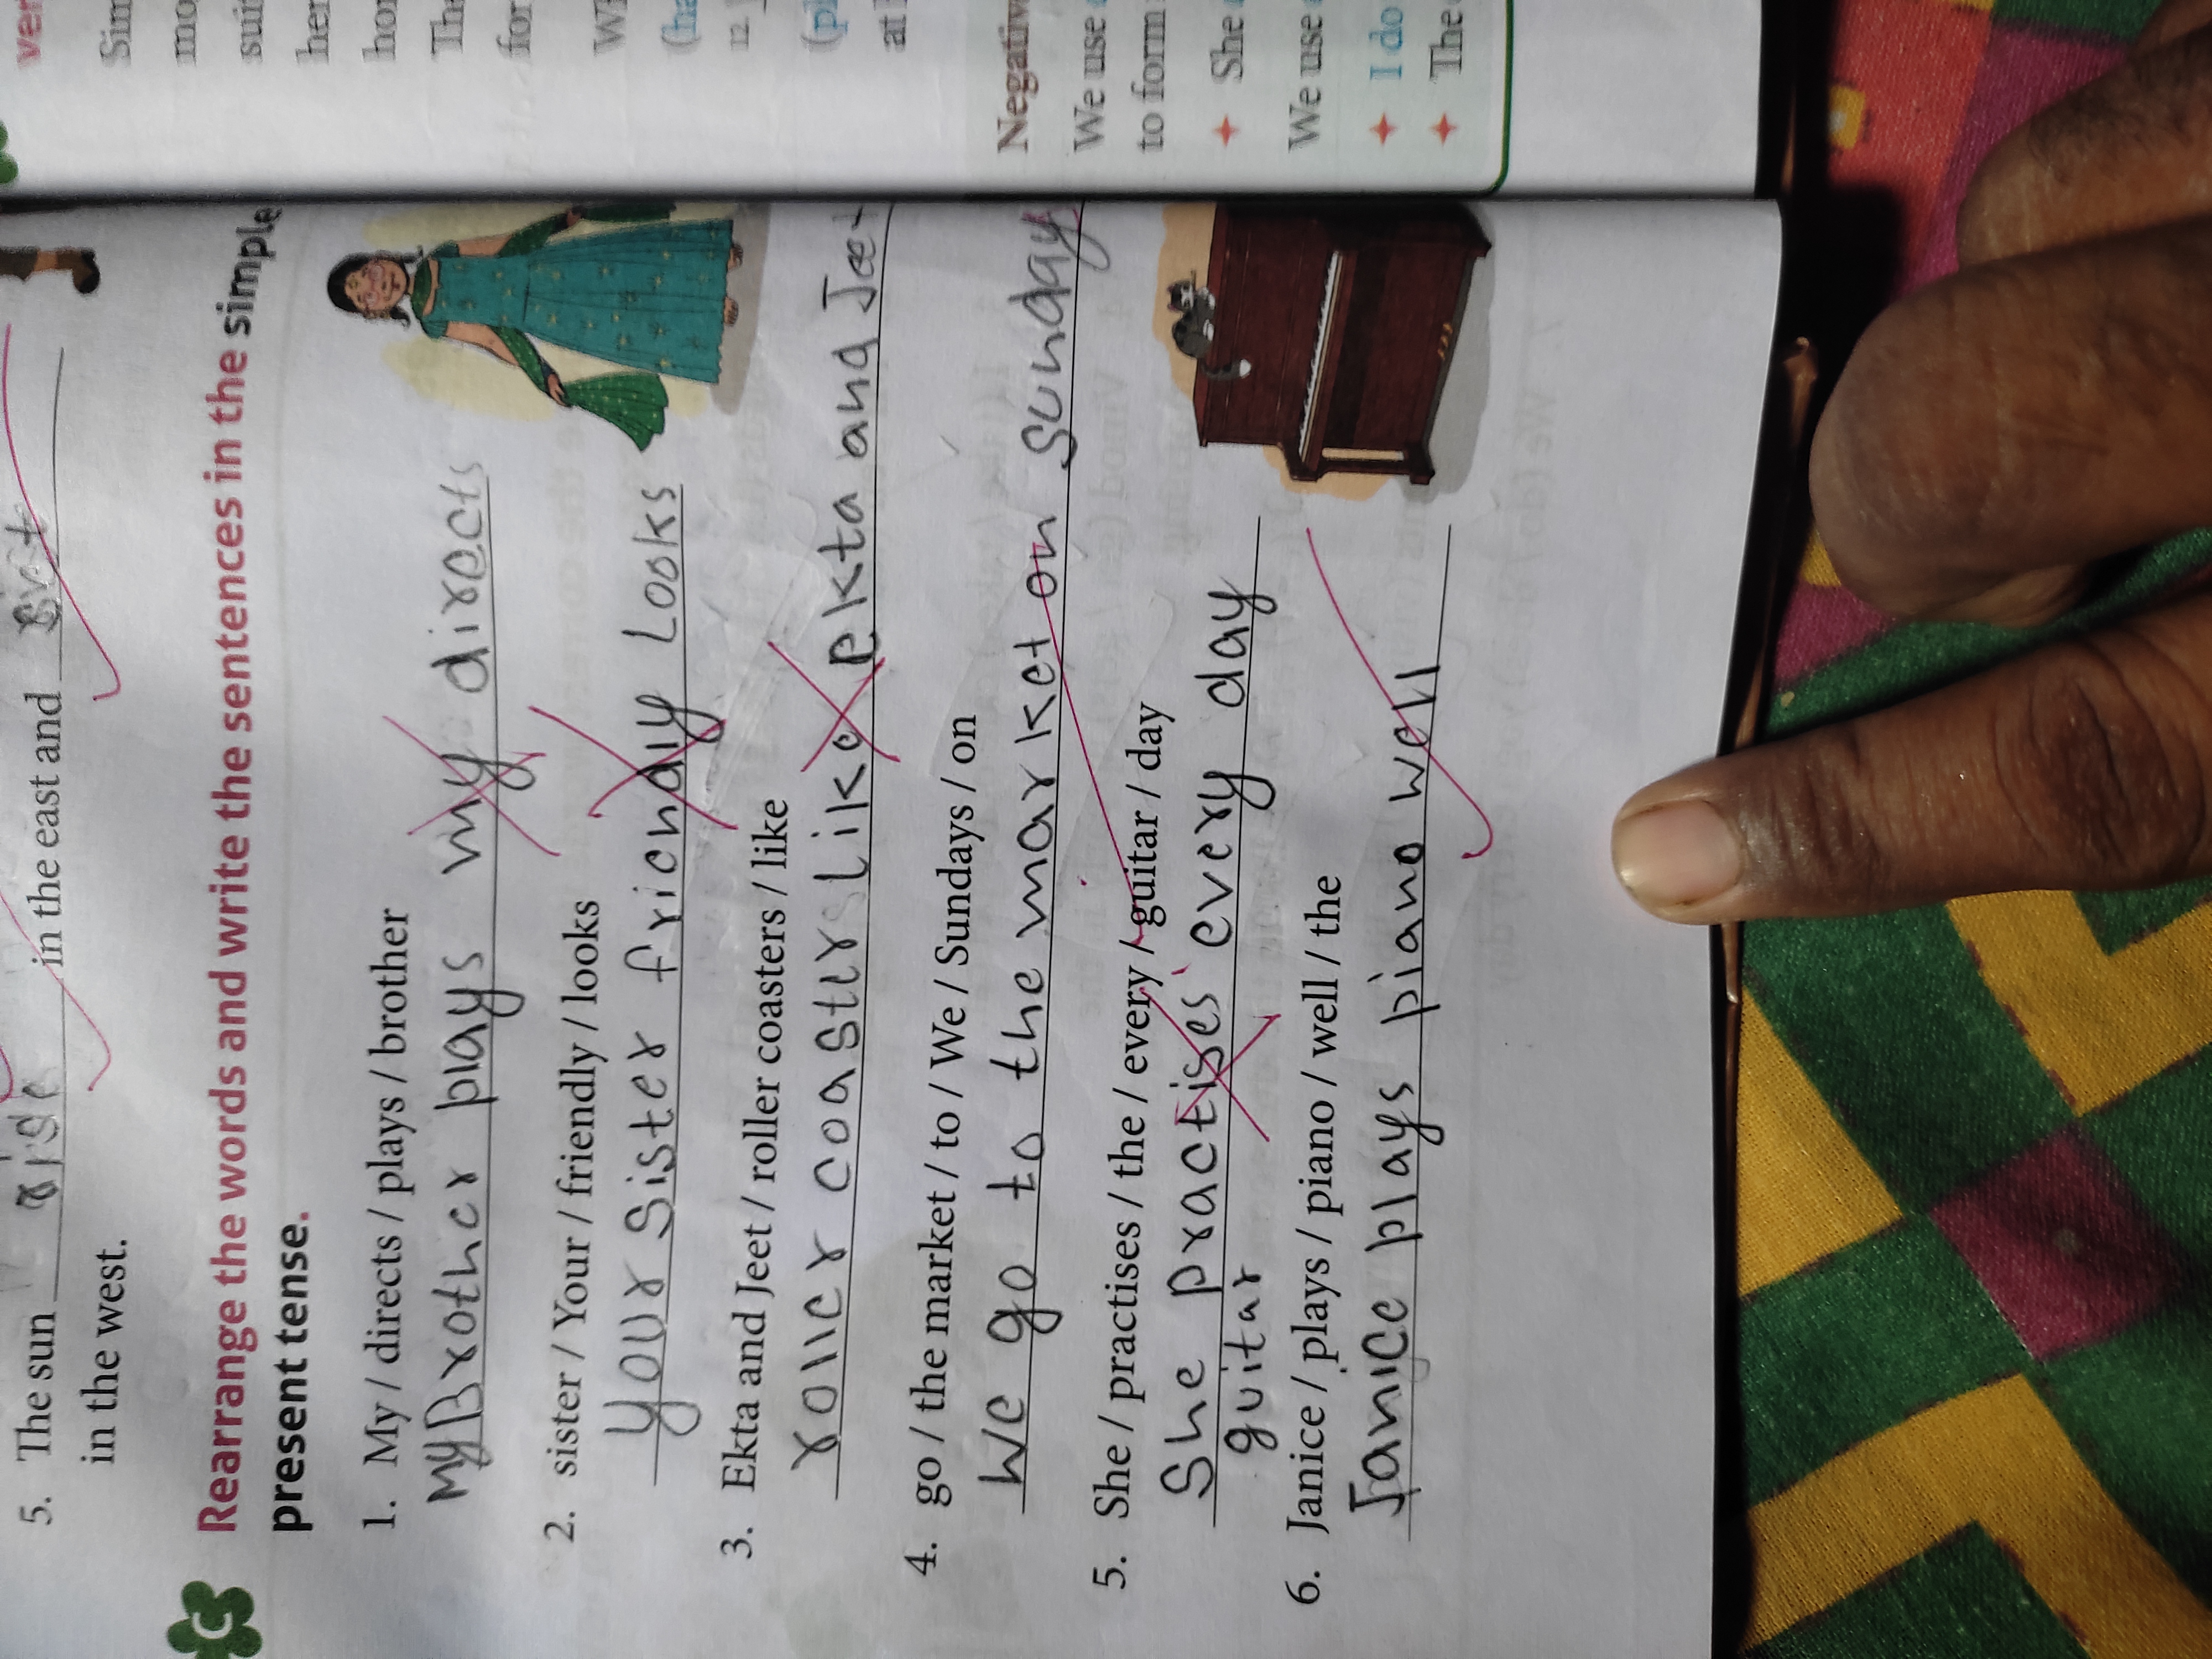 5. The sun rise in the east and set
in the west.
C
Rearrange the words and write the sentences in the simple
present tense.
1. My / directs / plays / brother
My Brother plays my directs
2. sister / Your / friendly / looks
your sister friendly Looks
3. Ekta and Jeet / roller coasters / like
roller coaster like ekta and Jeet
4. go / the market / to / We / Sundays / on
We go to the market on sunday
5. She / practises / the / every / guitar / day
She practises every day
guitar
6. Janice / plays / piano / well / the
Janice plays piano well
ver
Sim
mo
suit
her
hor
The
for
Wh
(ha
12
(pl
at
Negativ
We use
to form
She
We use
I do
The